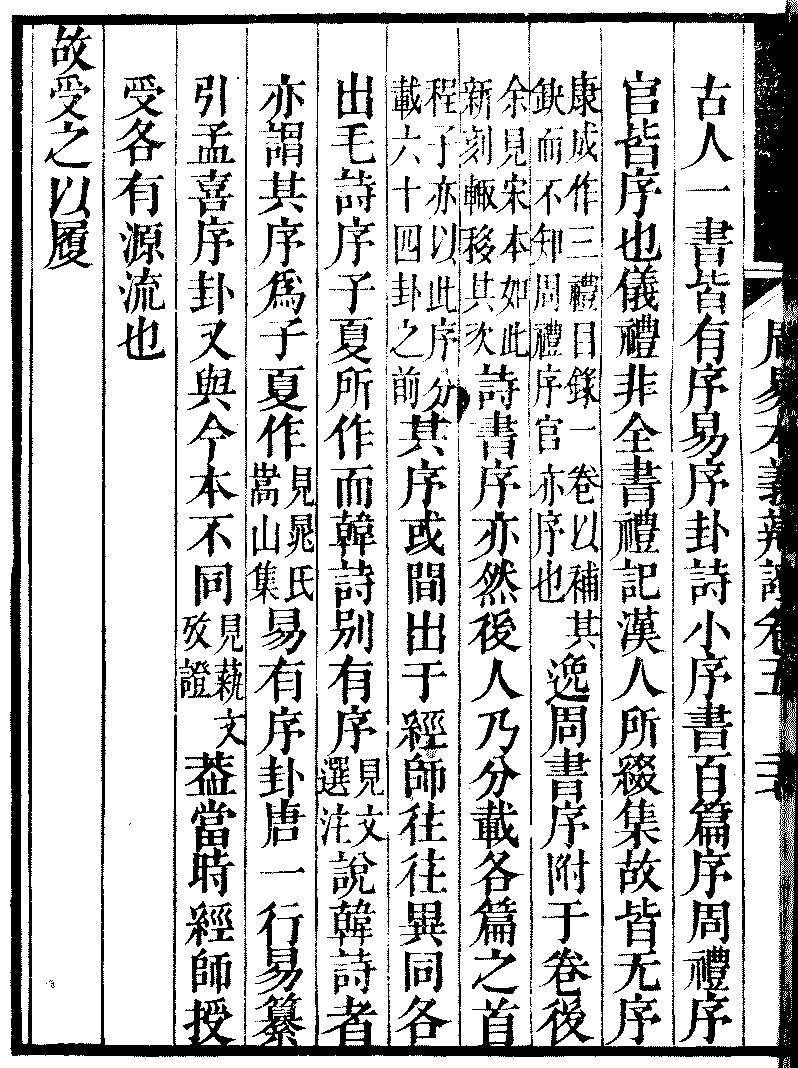 周易本義辨證卷五
古人一書皆有序易序卦詩小序書百篇序周禮序
官皆序也儀禮非全書禮記漢人所綴集故皆无序
康成作三禮目錄一卷以補其
鈌而不知周禮序官亦序也
逸周書序附于卷後
余見宋本如此
新刻輙移其次
詩書序亦然後人乃分載各篇之首
程子亦以此序分
載六十四卦之前
其序或間出于經師往往異同各
出毛詩序子夏所作而韓詩別有序
見文
選注
說韓詩者
亦謂其序爲子夏作
見晁氏
嵩山集
易有序卦唐一行易纂
引孟喜序卦又與今本不同
見蓺文
攷證
葢當時經師授
受各有源流也
故受之以履